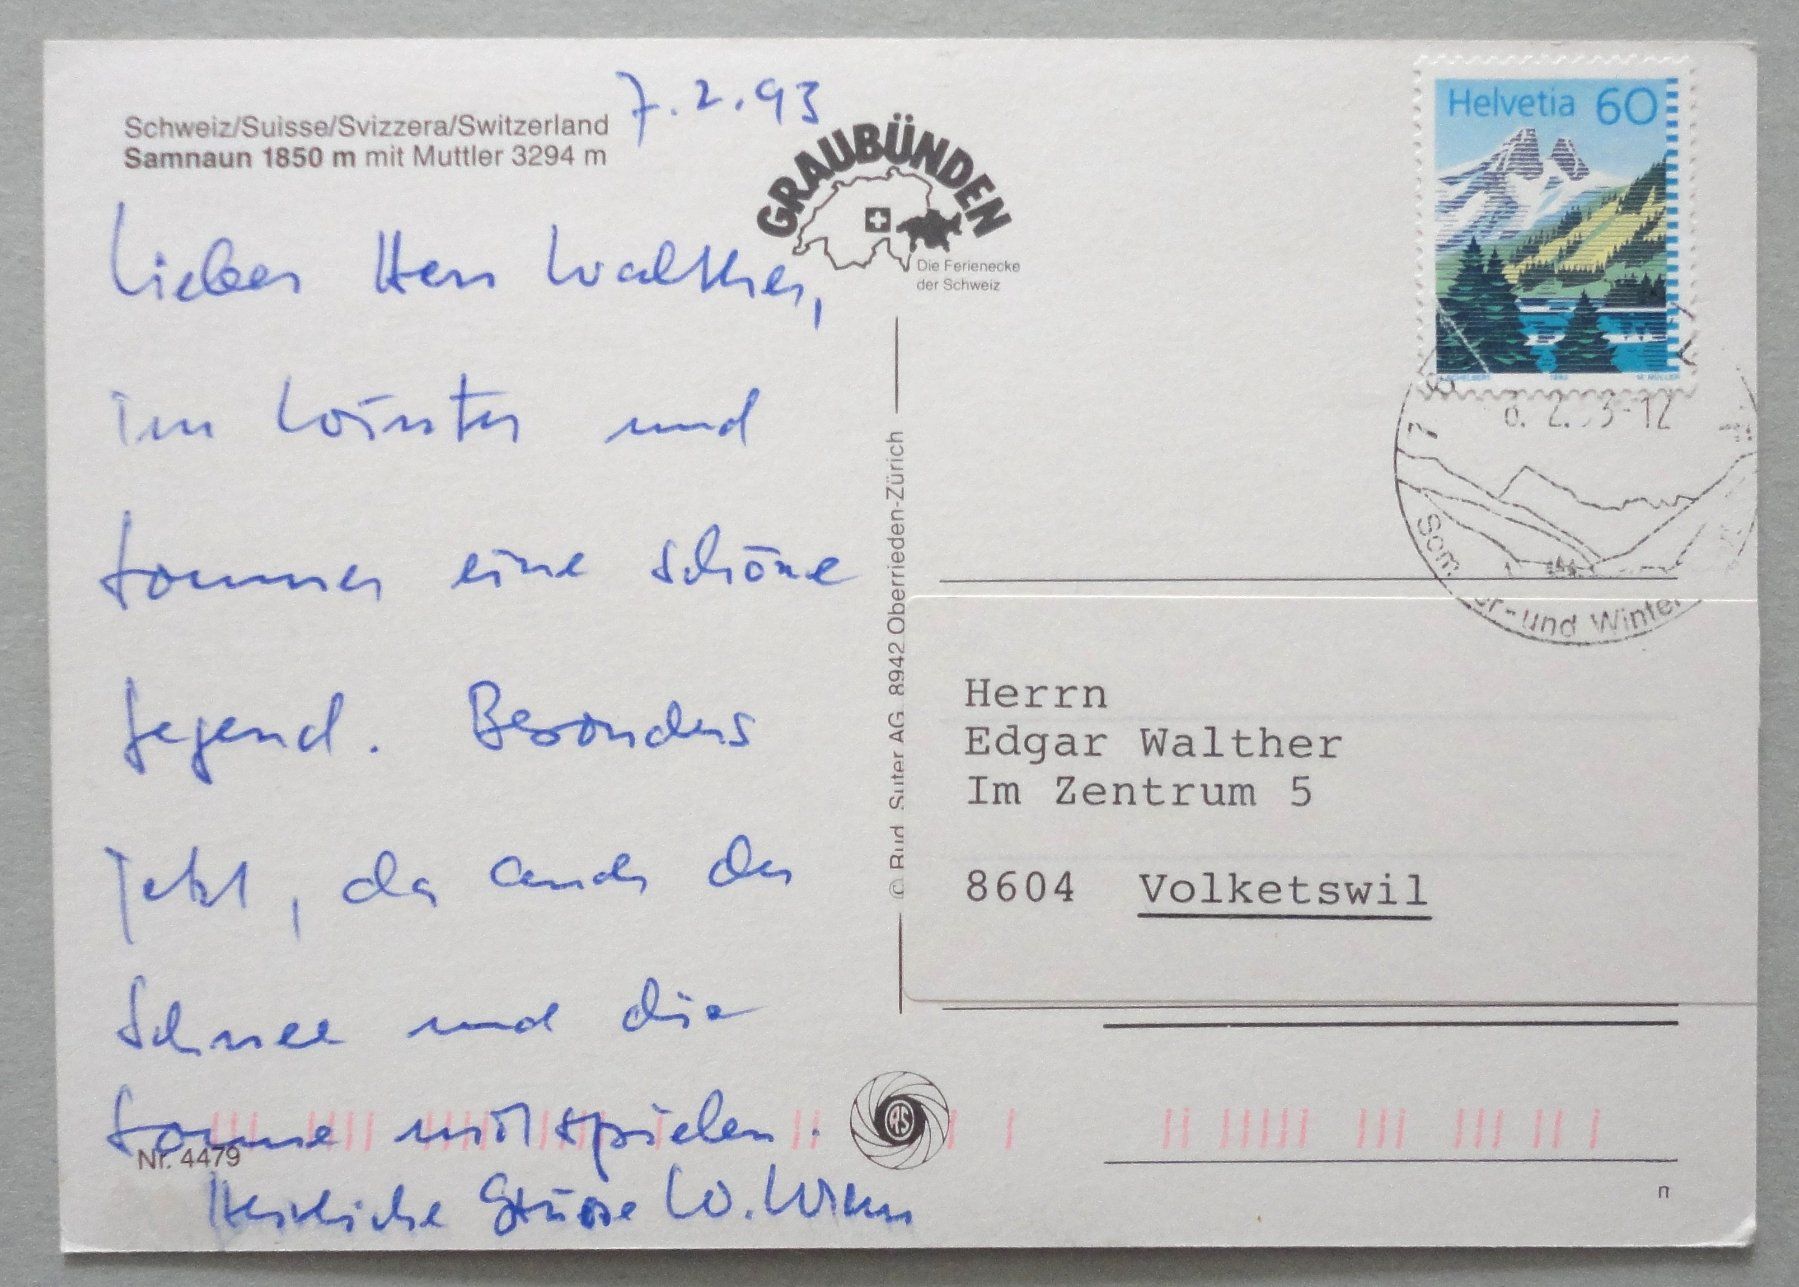 7.2.93
Schweiz/Suisse/Svizzera/Switzerland
Samnaun 1850 m mit Muttler 3294 m
Lieber Herr Walther,
im Winter und
Sommer eine schöne
Gegend. Besonders
jetzt, da auch der
Schnee und die
Sonne mitspielen.
Herzliche Grüsse W.
Nr. 4479
GRAUBÜNDEN
Die Ferienecke
der Schweiz
© Rud. Suter AG. 8942 Oberrieden-Zürich
RS
Helvetia 60
M. MÜLLER
Sommer- und Winter
Herrn
Edgar Walther
Im Zentrum 5
8604 Volketswil